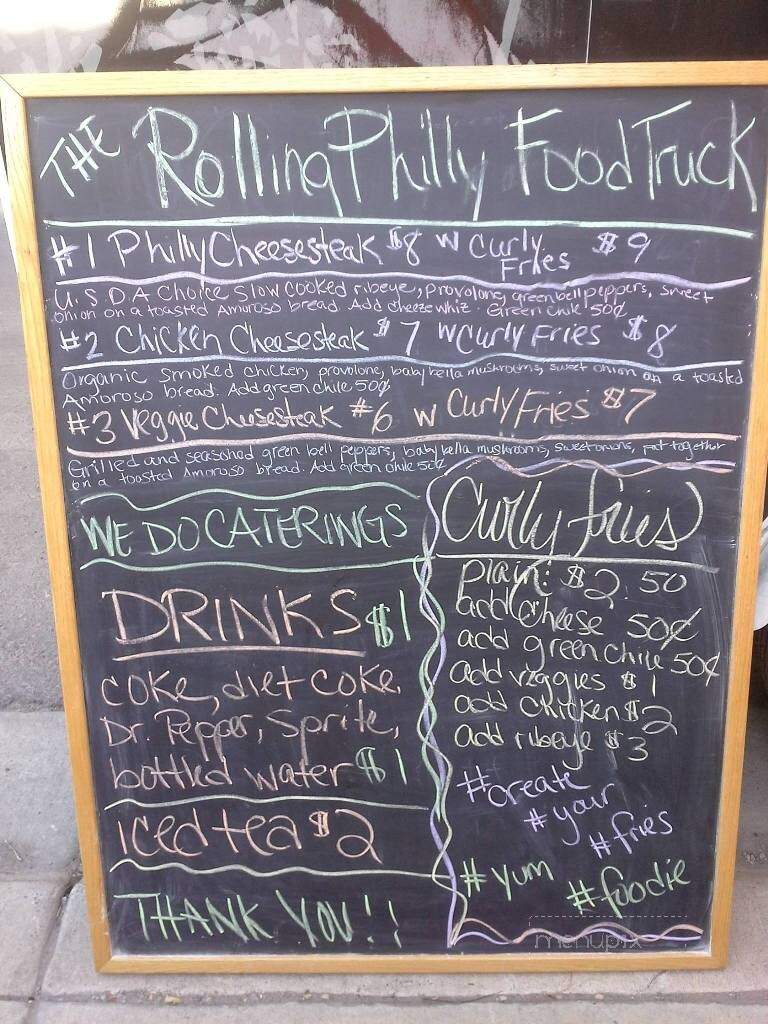 THE Rolling Philly Food Truck
#1 Philly Cheesesteak $8 w Curly Fries $9
U.S.D.A Choice slow cooked ribeye, provolone, green bell peppers, sweet
onion on a toasted Amoroso bread. Add cheeze whiz. Green chile 50¢
#2 Chicken Cheesesteak $7 w Curly Fries $8
Organic smoked chicken, provolone, baby bella mushrooms, sweet onion on a toasted
Amoroso bread. Add green chile 50¢
#3 Veggie Cheesesteak #6 w Curly Fries $7
Grilled and seasoned green bell peppers, baby bella mushrooms, sweet onions, put together
on a toasted Amoroso bread. Add green chile 50¢
WE DO CATERINGS
DRINKS $1
coke, diet coke,
Dr. Pepper, Sprite,
bottled water $1
iced tea $2
THANK YOU!!
Curly fries
plain: $2.50
add cheese 50¢
add green chile 50¢
add veggies $1
add chicken $2
add ribeye $3
#create
#your
#fries
#yum
#foodie
menupix